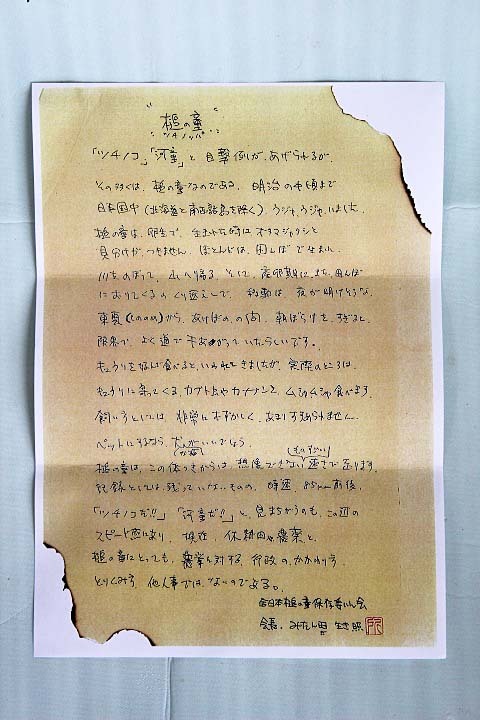 "槌の童"
ツチノッパ
「ツチノコ」「河童」と目撃例が、あげられるが、
その多くは、槌の童なのである。明治の中頃まで
日本国中(北海道と南西諸島を除く)ウジャウジャいました。
槌の童は、卵生で、生まれた時にはオタマジャクシと
見分けが、つきません。ほとんどは、田んぼで生まれ、
川をのぼって、山へ帰る。そして、産卵期に、また、田んぼ
におりてくるのくり返えしで、移動は、夜が明けそうな、
東雲(しののめ)から、あけぼの、の間、朝ぼらけを、すぎると、
限界で、よく道で干あがっていたらしいです。
キュウリを好んで食べると、いわれてきましたが、実際のところは、
キュウリに集ってくる、カブト虫やカナブンを、ムシャムシャ食べます。
飼いうとしては、非常にむずかしく、あまりすすめられません。
ペットにするなら、犬がいいでしょう。
槌の童は、この体つきからは、想像できない速さで走ります。
(ものすごい)
記録としては、残っていないものの、時速、85km前後、
「ツチノコだ!!」「河童だ!!」と、見まちがうのも、この辺の
スピード感により、現在、休耕田や農薬と、
槌の童にとっても、農業に対する、行政の、かかわり方
とりくみ方、他人事では、ないのである。
全日本槌の童保存委員会
会長、